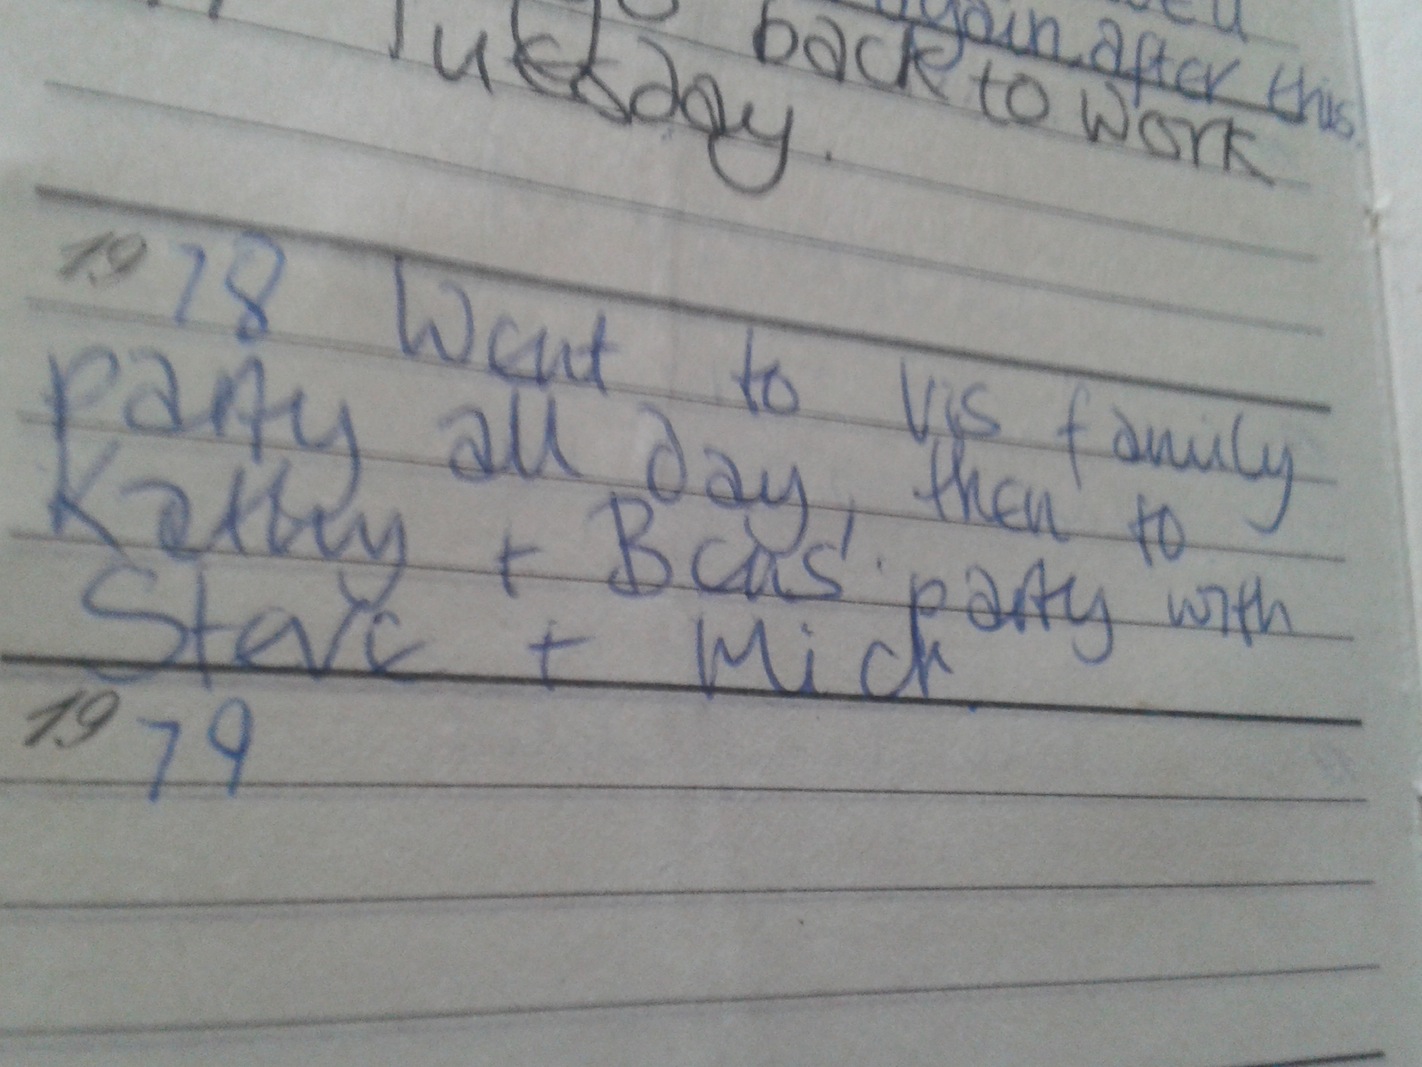 again after this.
back to work
Tuesday.
1978 Went to Vis family
party all day, then to
Kathy + Bens' party with
Steve + Mick
1979